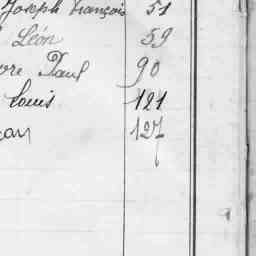 Joseph François 51
Léon 59
Paul 90
Louis 121
127